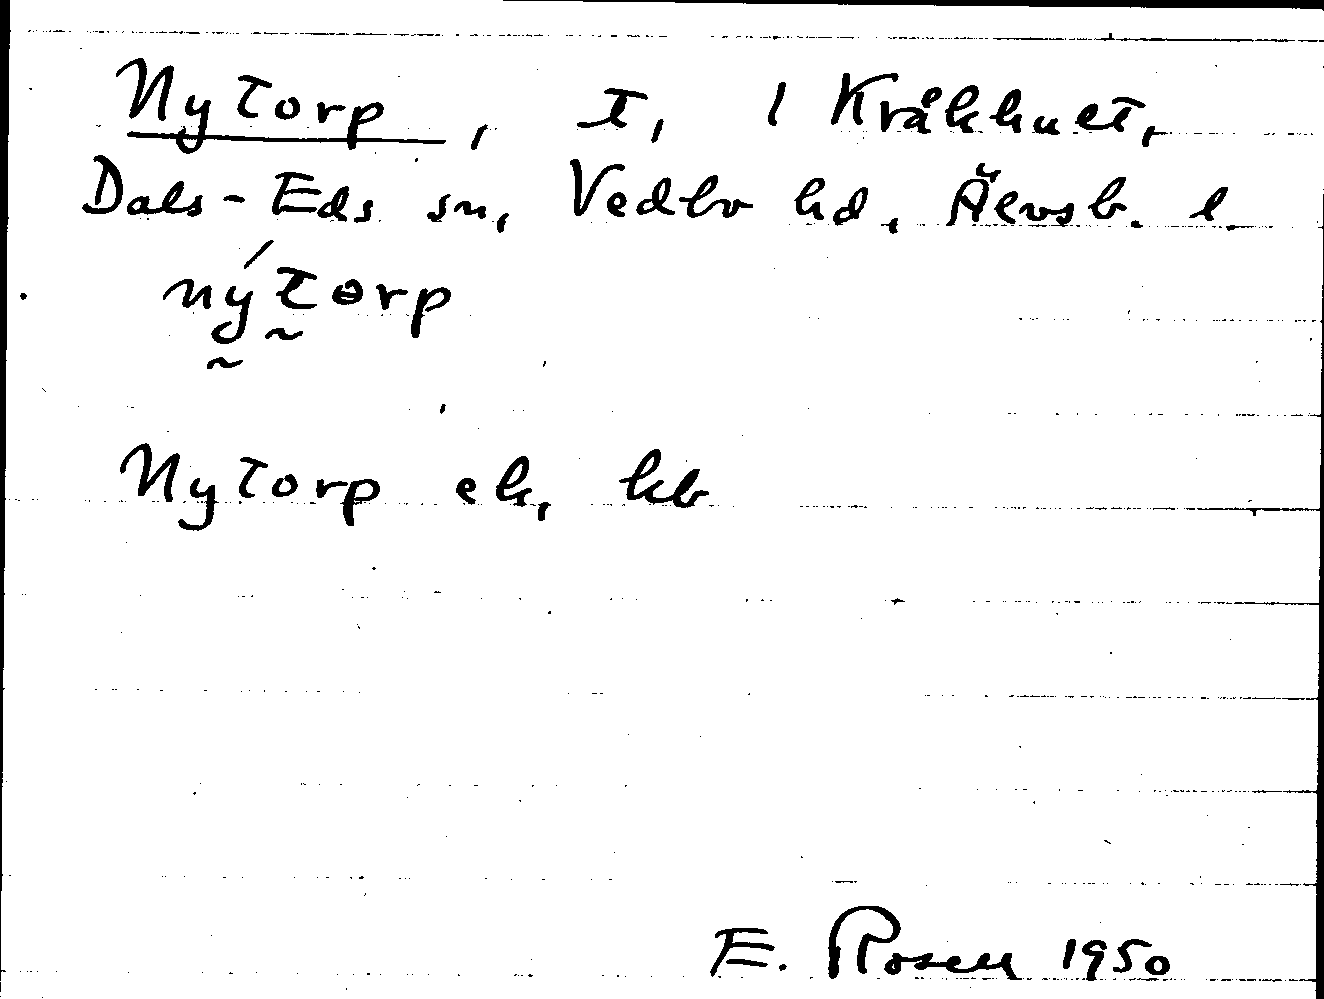 Nytorp, t, 1 Kråkhuet,
Dals-Eds sn, Vedbo hd, Älvsb. l.
nýtorp
Nytorp ek, kb
E. Rosell 1950